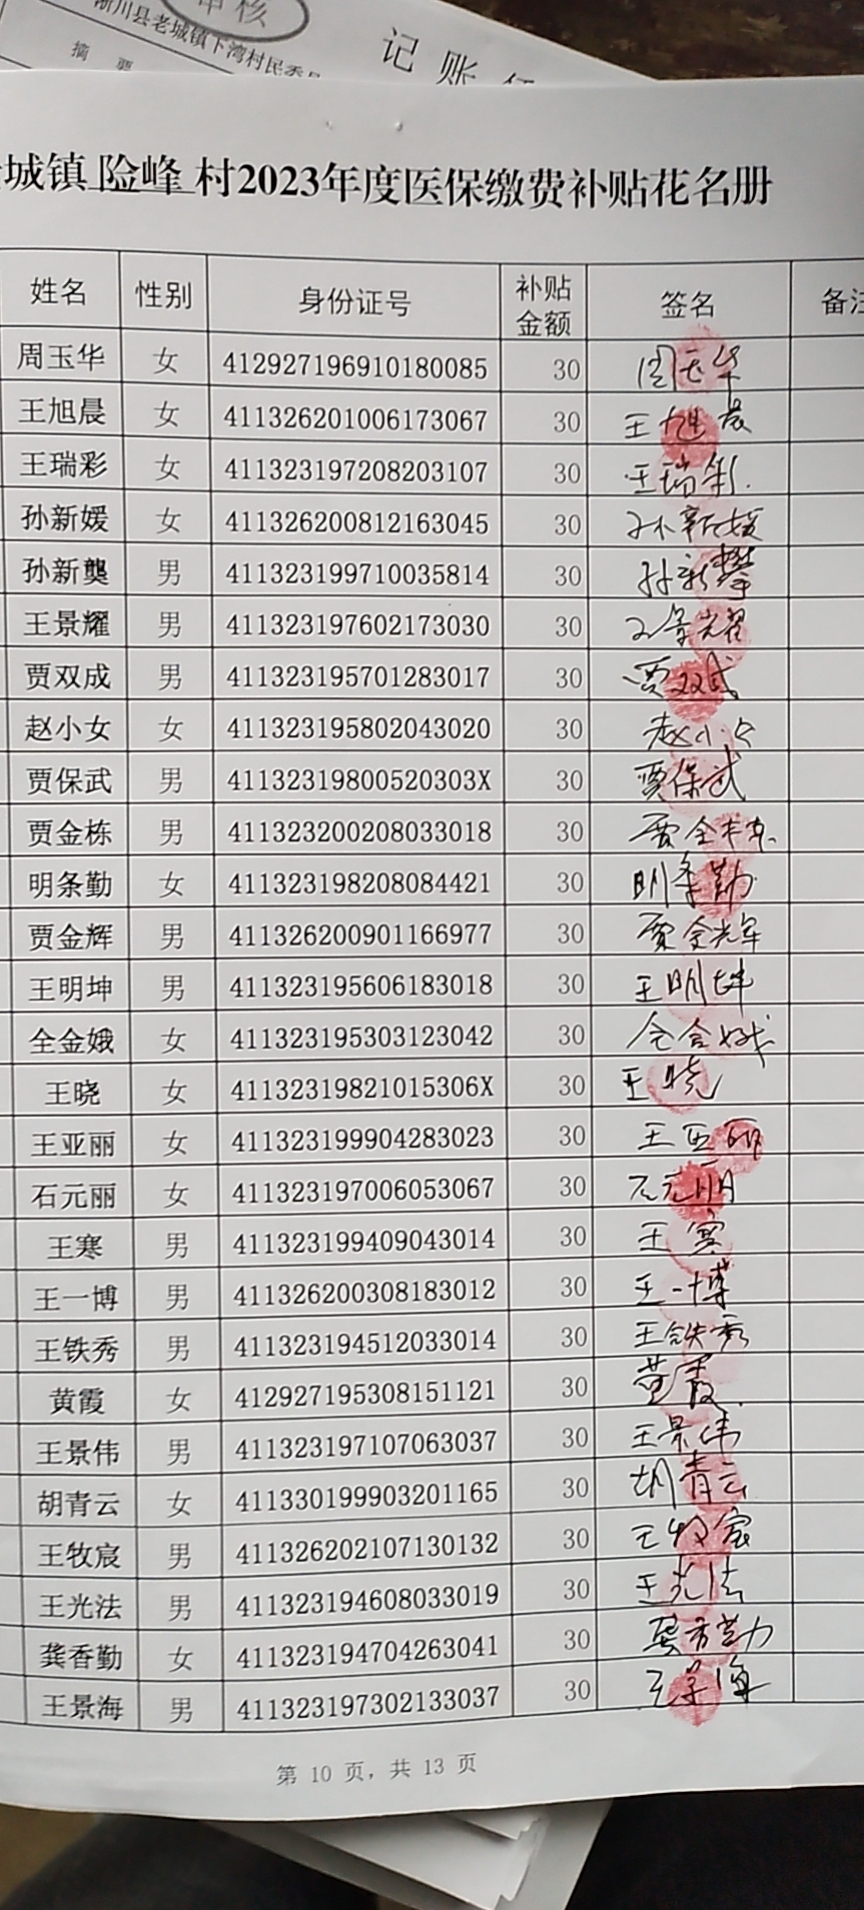 审核
淅川县老城镇下湾村民委员
记账
摘 要
城镇 险峰 村2023年度医保缴费补贴花名册
姓名 性别 身份证号 补贴金额 签名 备注
周玉华 女 412927196910180085 30 周玉华
王旭晨 女 411326201006173067 30 王旭晨
王瑞彩 女 411323197208203107 30 王瑞彩
孙新媛 女 411326200812163045 30 孙新媛
孙新龑 男 411323199710035814 30 孙新
王景耀 男 411323197602173030 30 王景耀
贾双成 男 411323195701283017 30 贾双成
赵小女 女 411323195802043020 30 赵小女
贾保武 男 41132319800520303X 30 贾保武
贾金栋 男 411323200208033018 30 贾金栋
明条勤 女 411323198208084421 30 明条勤
贾金辉 男 411326200901166977 30 贾金辉
王明坤 男 411323195606183018 30 王明坤
全金娥 女 411323195303123042 30 全金娥
王晓 女 41132319821015306X 30 王晓
王亚丽 女 411323199904283023 30 王亚丽
石元丽 女 411323197006053067 30 石元丽
王寒 男 411323199409043014 30 王寒
王一博 男 411326200308183012 30 王一博
王铁秀 男 411323194512033014 30 王铁秀
黄霞 女 412927195308151121 30 黄霞
王景伟 男 411323197107063037 30 王景伟
胡青云 女 411330199903201165 30 胡青云
王牧宸 男 411326202107130132 30 王牧宸
王光法 男 411323194608033019 30 王光法
龚香勤 女 411323194704263041 30 龚香勤
王景海 男 411323197302133037 30 王景海
第 10 页，共 13 页